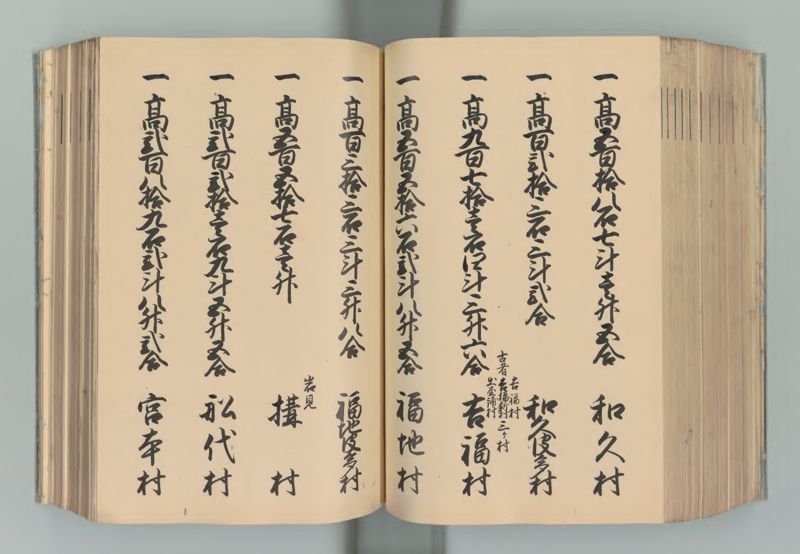 一 高五百拾八石七斗壱升五合 和久村
一 高百弐拾三石三斗弐合 和久皮多村
一 高九百七拾壱石四斗三升六合 吉福村
古者 吉福村 吉福新村 三ケ村
一 高五百五拾六石弐斗八升五合 福地村
一 高百三拾三石三斗三升八合 福地皮多村
一 高五百五拾七石壱升 岩見構村
一 高弐百弐拾壱石九斗五升五合 船代村
一 高弐百八拾九石弐斗八升弐合 宮本村